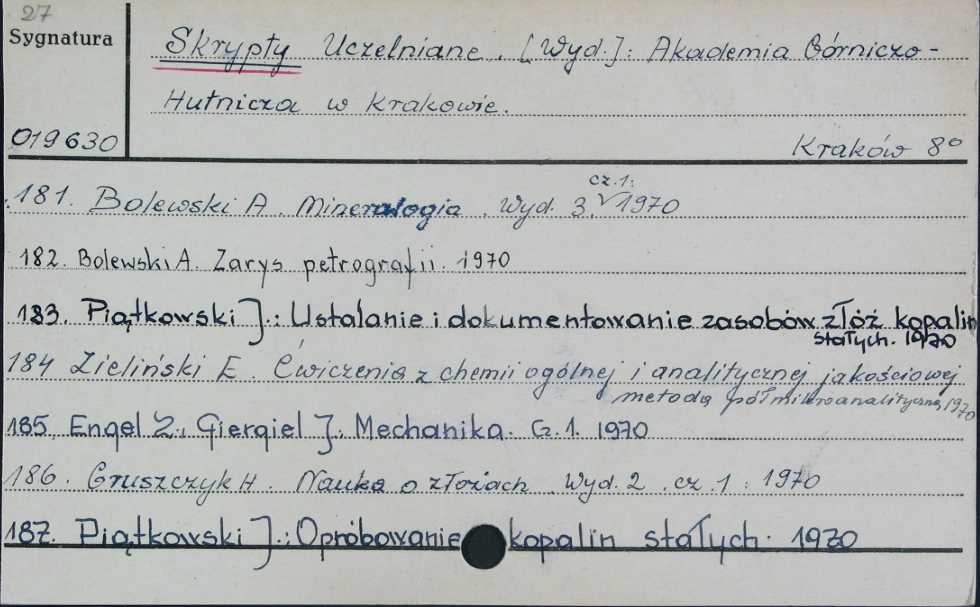 27
Sygnatura
Skrypty Uczelniane. [Wyd.]: Akademia Górniczo-
Hutnicza w Krakowie.
019630
Kraków 8°
181. Bolewski A. Mineralogia. Wyd. 3. cz.1: 1970
182. Bolewski A. Zarys petrografii. 1970
183. Piątkowski J.: Ustalanie i dokumentowanie zasobów złóż kopalin
stałych. 1970
184 Zieliński E. Ćwiczenia z chemii ogólnej i analitycznej jakościowej
metodą półmikroanalityczną, 1970
185. Engel Z., Giergiel J.: Mechanika. Cz. 1. 1970
186. Gruszczyk H. Nauka o złożach. Wyd. 2. cz. 1: 1970
187. Piątkowski J.: Opróbowanie kopalin stałych. 1970